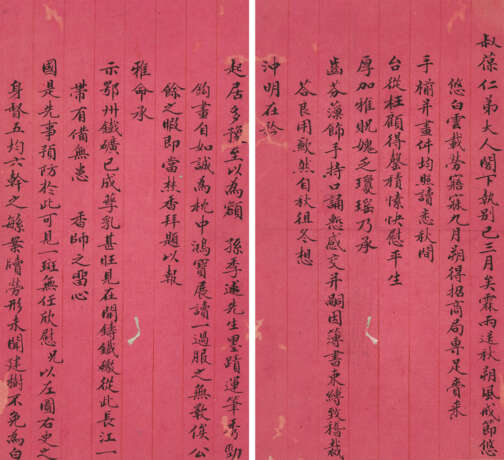 叔葆仁弟大人閣下執別已三月矣霖雨迭秋朔風戒節悠
悠白雲載勞寤寐九月朔得招商局專足賫來
手揃并畫件均照讀悉秋間
台從枉顧得罄積愫快慰平生
厚加雅貺媿乏瓊瑤乃承
齒芬藻飾手持口誦慙感交并嗣因簿書束縛致稽裁
答良用歉然自秋徂冬想
沖明在
起居多豫至以為頌 孫季逑先生墨蹟運筆秀勁
鉤畫自如誠為枕中鴻寶展讀一過服之無斁俟公
餘之暇即當焚香拜題以報
雅命承
示鄂州鐵礦已成孳乳甚旺見在開鑄鐵繳從此長江一
帶有備無患 香帥之盡心
國是先事預防於此可見一斑無任欣慰兄以左圖右史之
身督五均六幹之繇案牘勞形未聞建樹不免為白